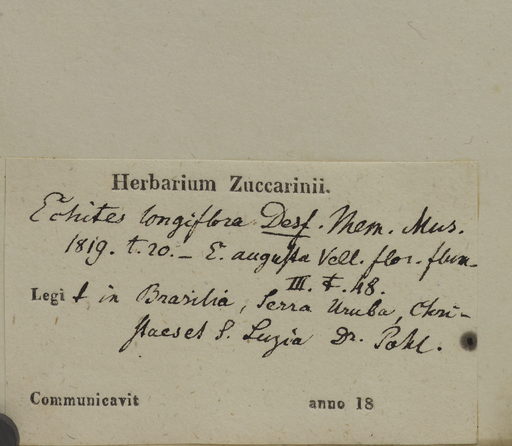 Herbarium Zuccarinii.
Echites longiflora Desf. Mem. Mus.
1819. t. 20. — E. augusta Vell. flor. flum.
III. t. 48.
Legit in Brasilia, Serra Uruba, Chri-
staes et S. Luzia Dr. Pohl.
Communicavit anno 18